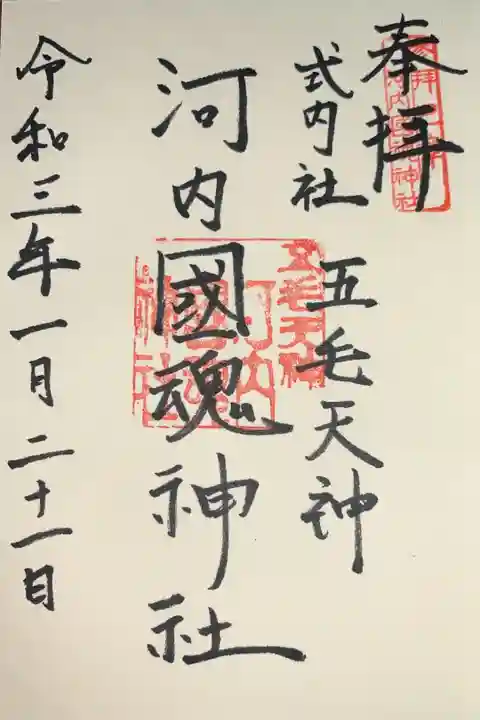 奉拝
式内社 五毛天神
河内國魂神社
令和三年一月二十一日
五毛天神
河内